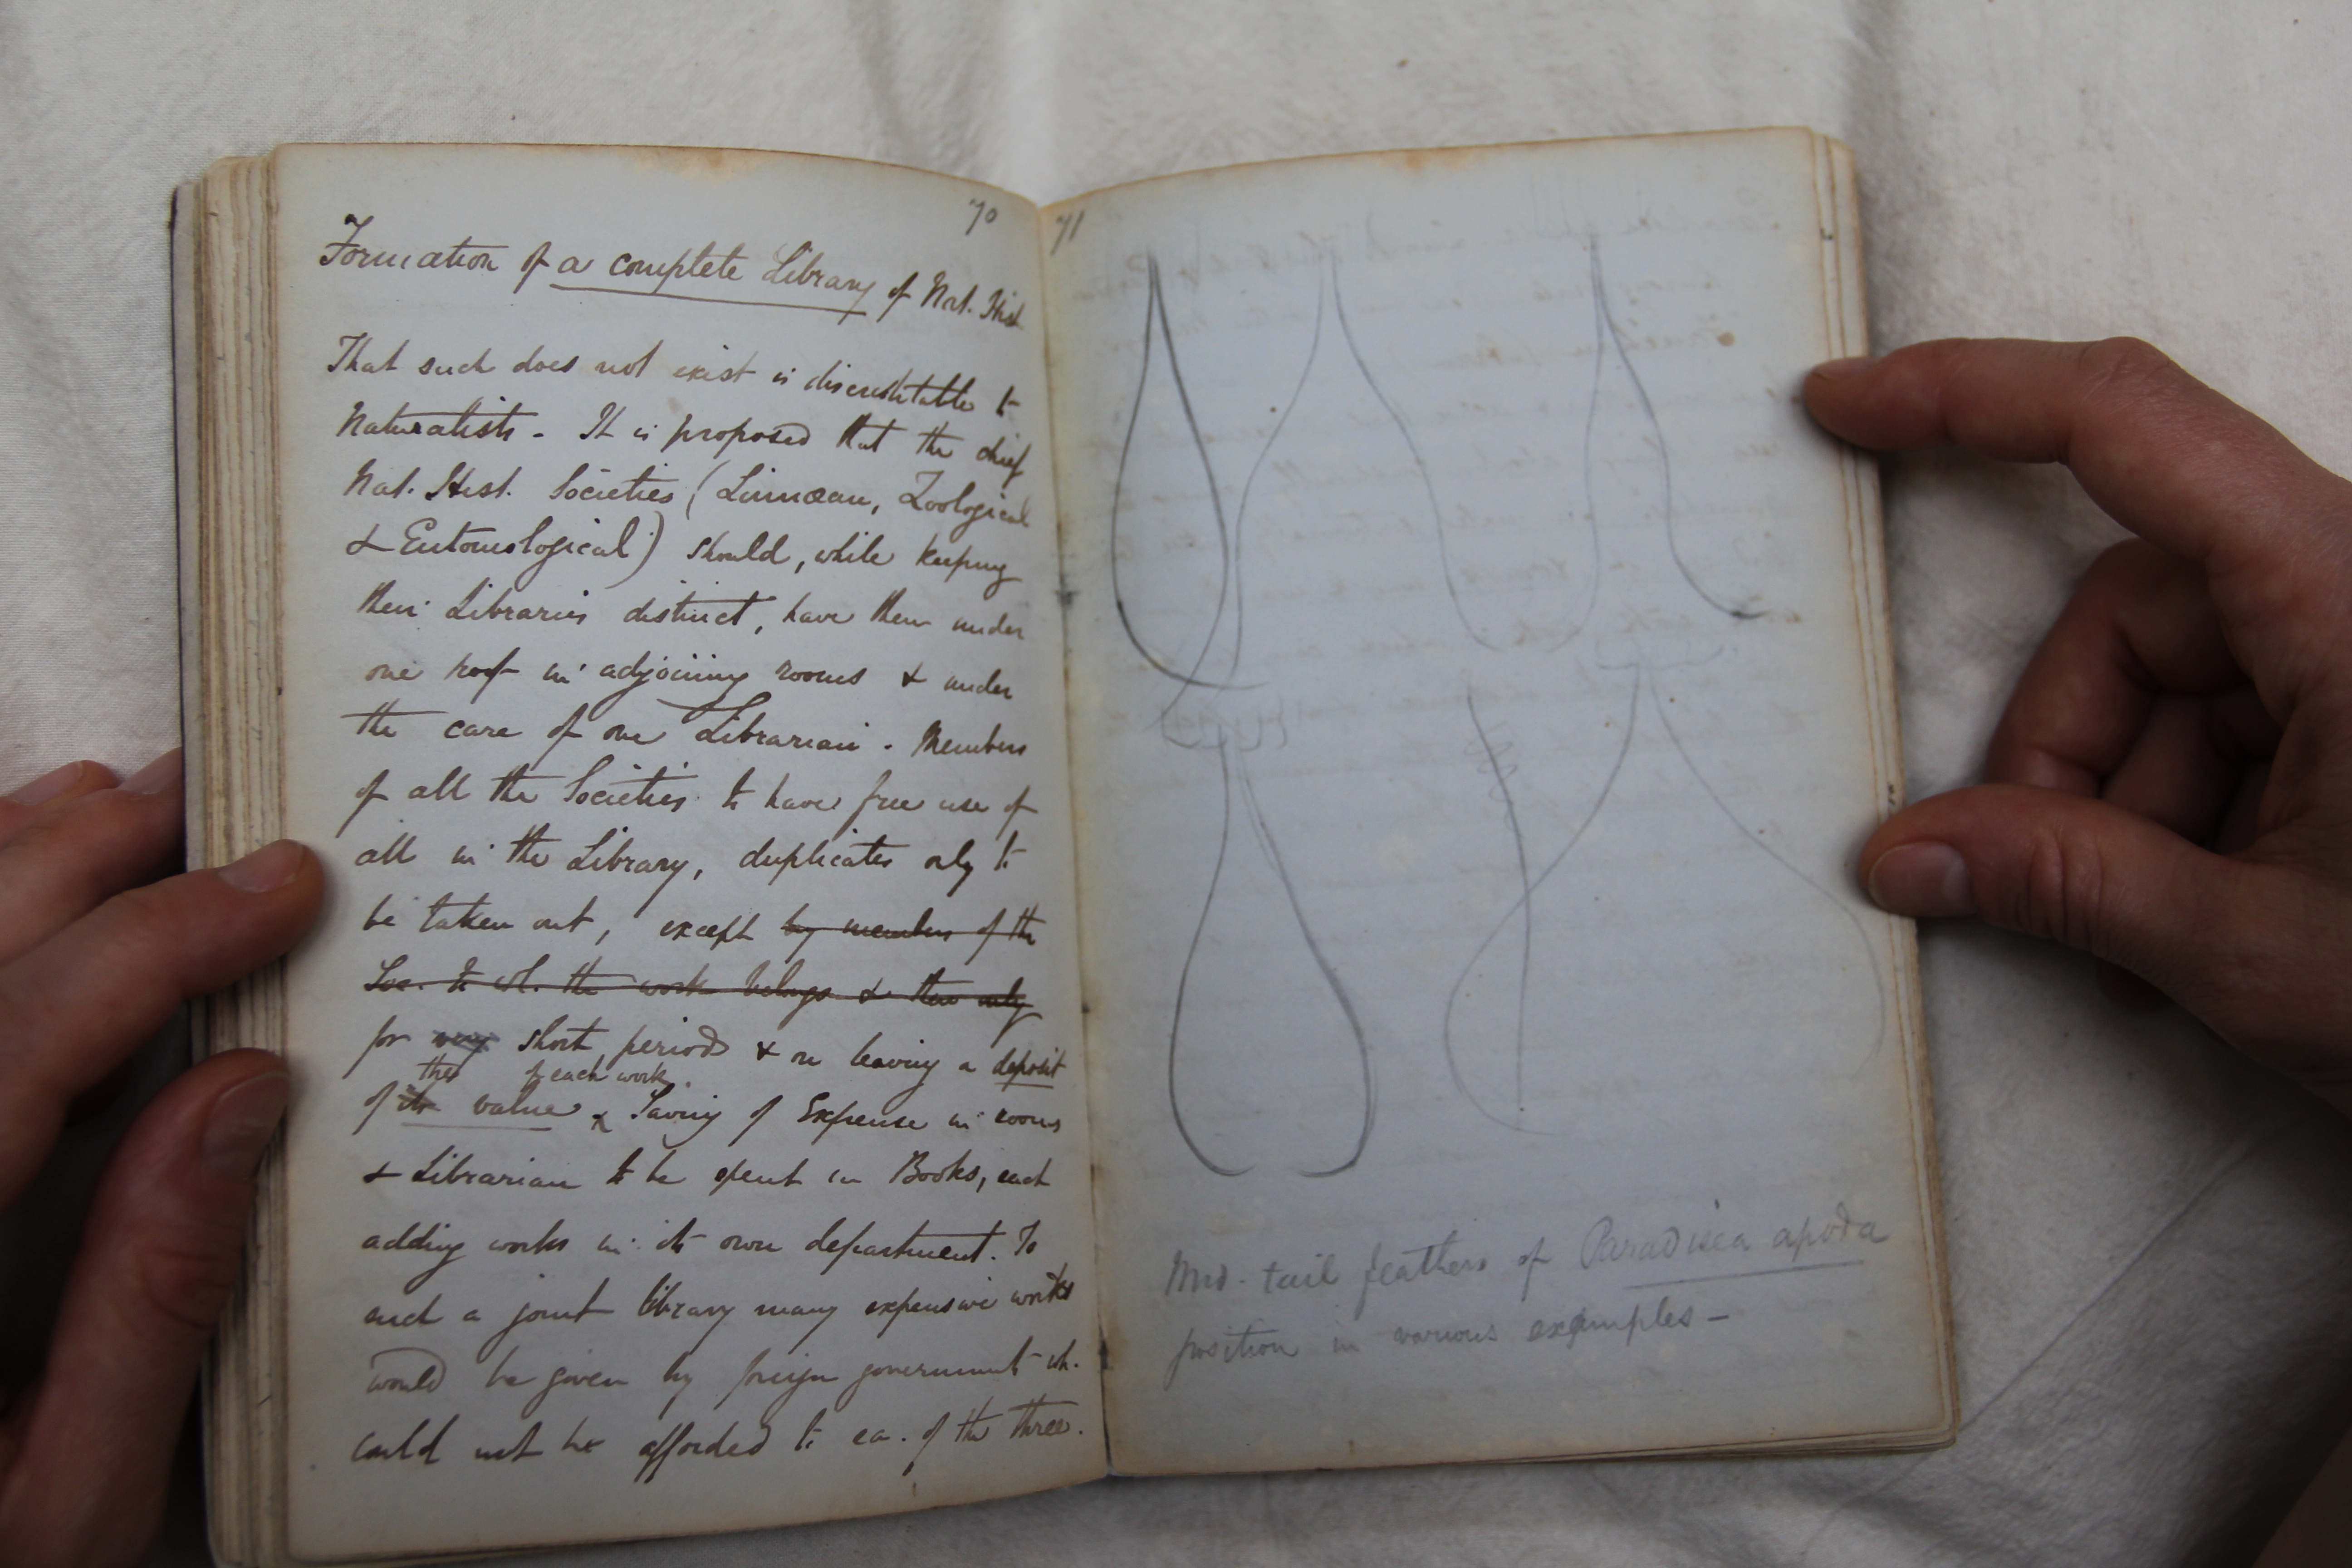 70
Formation of a complete Library of Nat. Hist.
That such does not exist is discreditable to
Naturalists - It is proposed that the chief
Nat. Hist. Societies (Linnæan, Zoological
& Entomological) should, while keeping
their Libraries distinct, have them under
one roof in adjoining rooms & under
the care of one Librarian. Members
of all the Societies to have free use of
all in the Library, duplicates only to
be taken out, except by members of the
Soc. to wh. the work belongs & then only
for very short periods & on leaving a deposit
the of each work.
of its value & Saving of Expense in rooms
& Librarian to be spent in Books, each
adding works in its own department. To
such a joint library many expensive works
would be given by foreign government wh.
could not be afforded to ea. of the three.
71
Mid-tail feathers of Paradisea apoda
position in various examples -